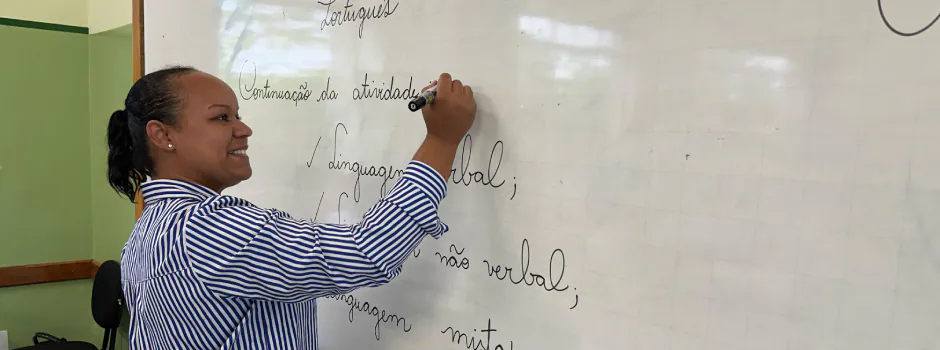 Português
Continuação da atividade
✓ Linguagem verbal;
✓ não verbal;
linguagem mista